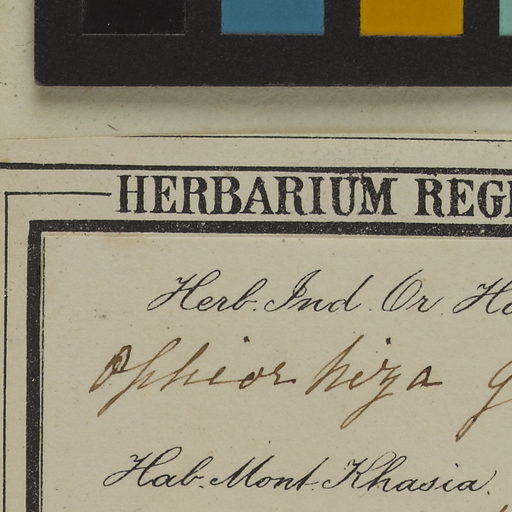 HERBARIUM REG
Herb. Ind. Or. Ho
Ophiorrhiza g
Hab. Mont. Khasia.